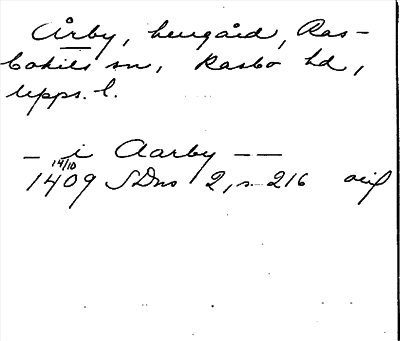 Årby, herrgård, Ras-
bokils sn, Rasbo hd,
Upps. l.
— i Aarby — —
14/10
1409 SDns 2, s. 216 orig